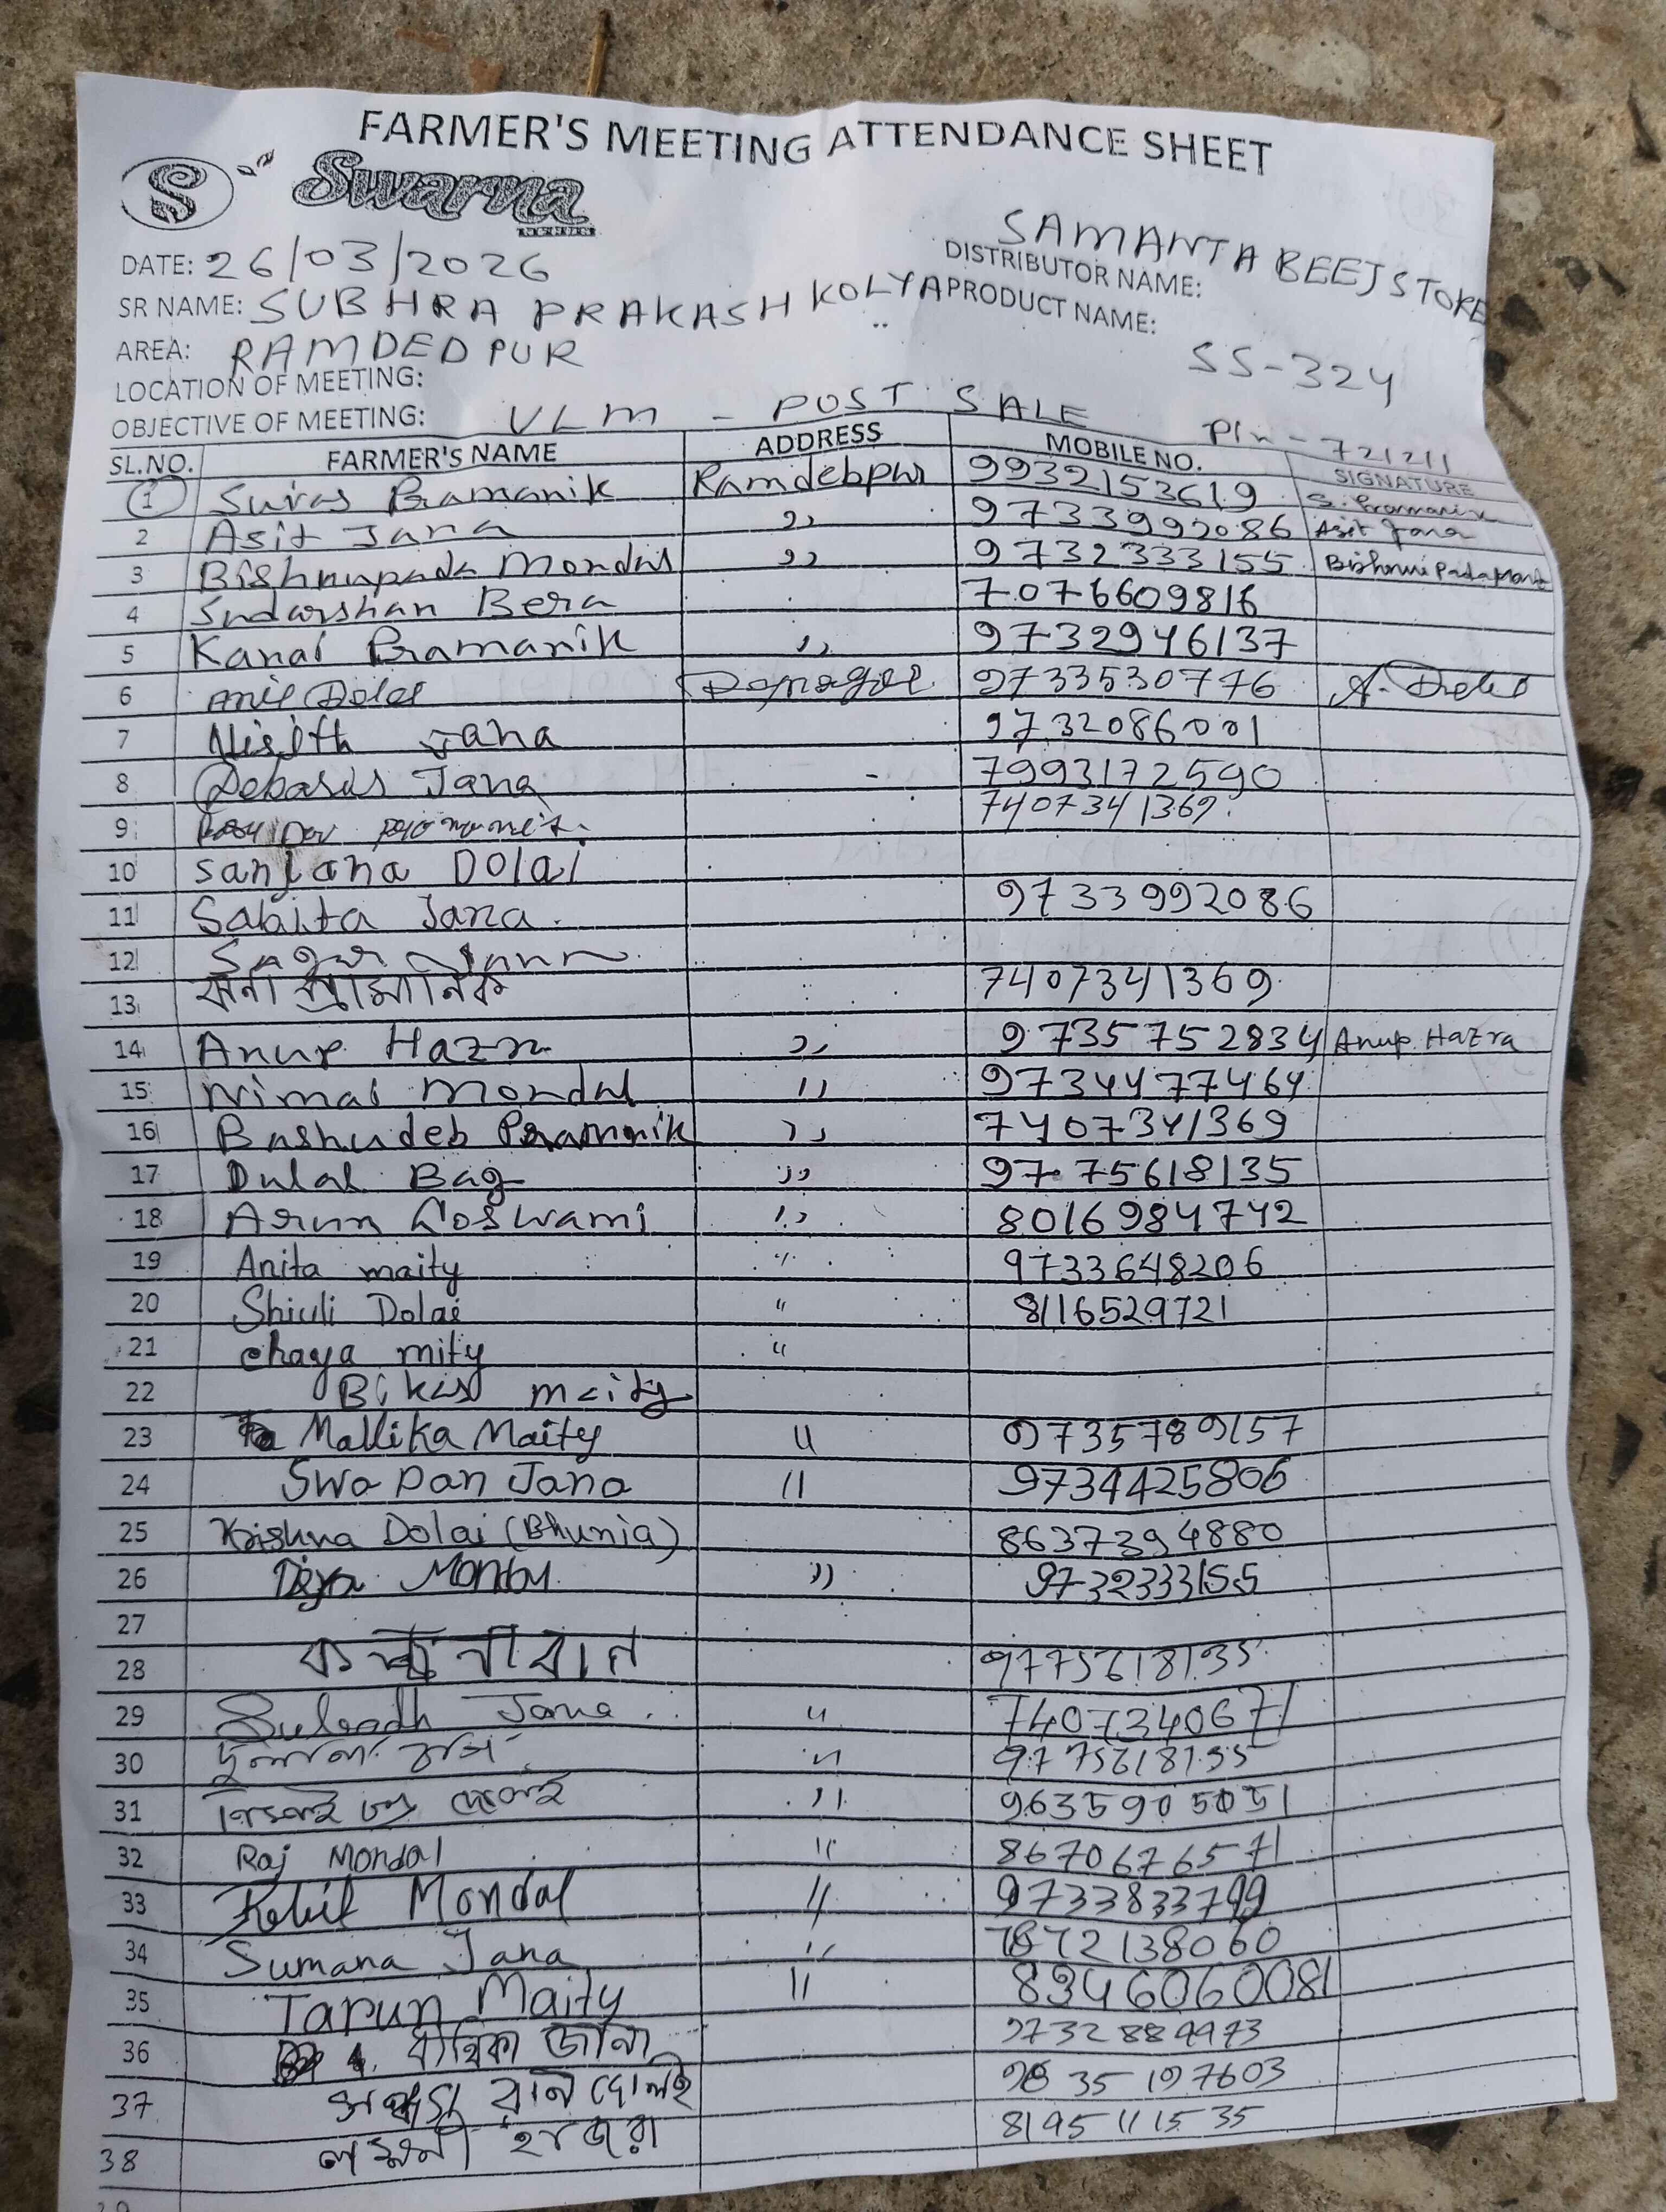 FARMER'S MEETING ATTENDANCE SHEET
S Swarna
DATE: 26/03/2026
DISTRIBUTOR NAME: SAMANTA BEEJ STORE
SR NAME: SUBHRA PRAKASH KOLYA
PRODUCT NAME: SS-324
AREA: RAMDEDPUR
LOCATION OF MEETING:
OBJECTIVE OF MEETING: VLM - POST SALE
Pin - 721211
SL.NO. FARMER'S NAME ADDRESS MOBILE NO. SIGNATURE
1 Pramanik Ramdebpur 9932153619 S. Pramanik
2 Asit Jana ,, 9733992086 Asit Jana
3 Bishnupada Mondal ,, 9732333155
4 Sudarshan Bera 7076609816
5 Kanai Pramanik ,, 9732946137
6 Anil Dolai 9733530776
7 Nisith Jana 9732086001
8 Debasis Jana - 7993172590
9 7407341369
10 Sanjana Dolai
11 Sabita Jana. 9733992086
12 Sagar
13 প্রামানিক 7407341369
14 Anup Hazra ,, 9735752834 Anup. Hazra
15 Nimai Mondal ,, 9734477464
16 Bashudeb Pramanik ,, 7407341369
17 Dulal Bag ,, 9775618135
18 Arun Goswami ,, 8016984742
19 Anita maity " 9733648206
20 Shiuli Dolai " 8116529721
21 chaya mity "
22 Bikas maity
23 Mallika Maity " 9735789157
24 Swapan Jana " 9734425806
25 Krishna Dolai (Bhunia) 8637394880
26 ,, 9732333155
27
28 9775618135
29 Jana " 7407340671
30 " 9775618135
31 ,, 9635905051
32 Raj Mondal " 8670676571
33 Mondal " 9733833799
34 Sumana Jana " 7872138060
35 Tarun Maity " 8346060081
36 বীথিকা জানা
37 9835197603
38 হাজরা 8195111535